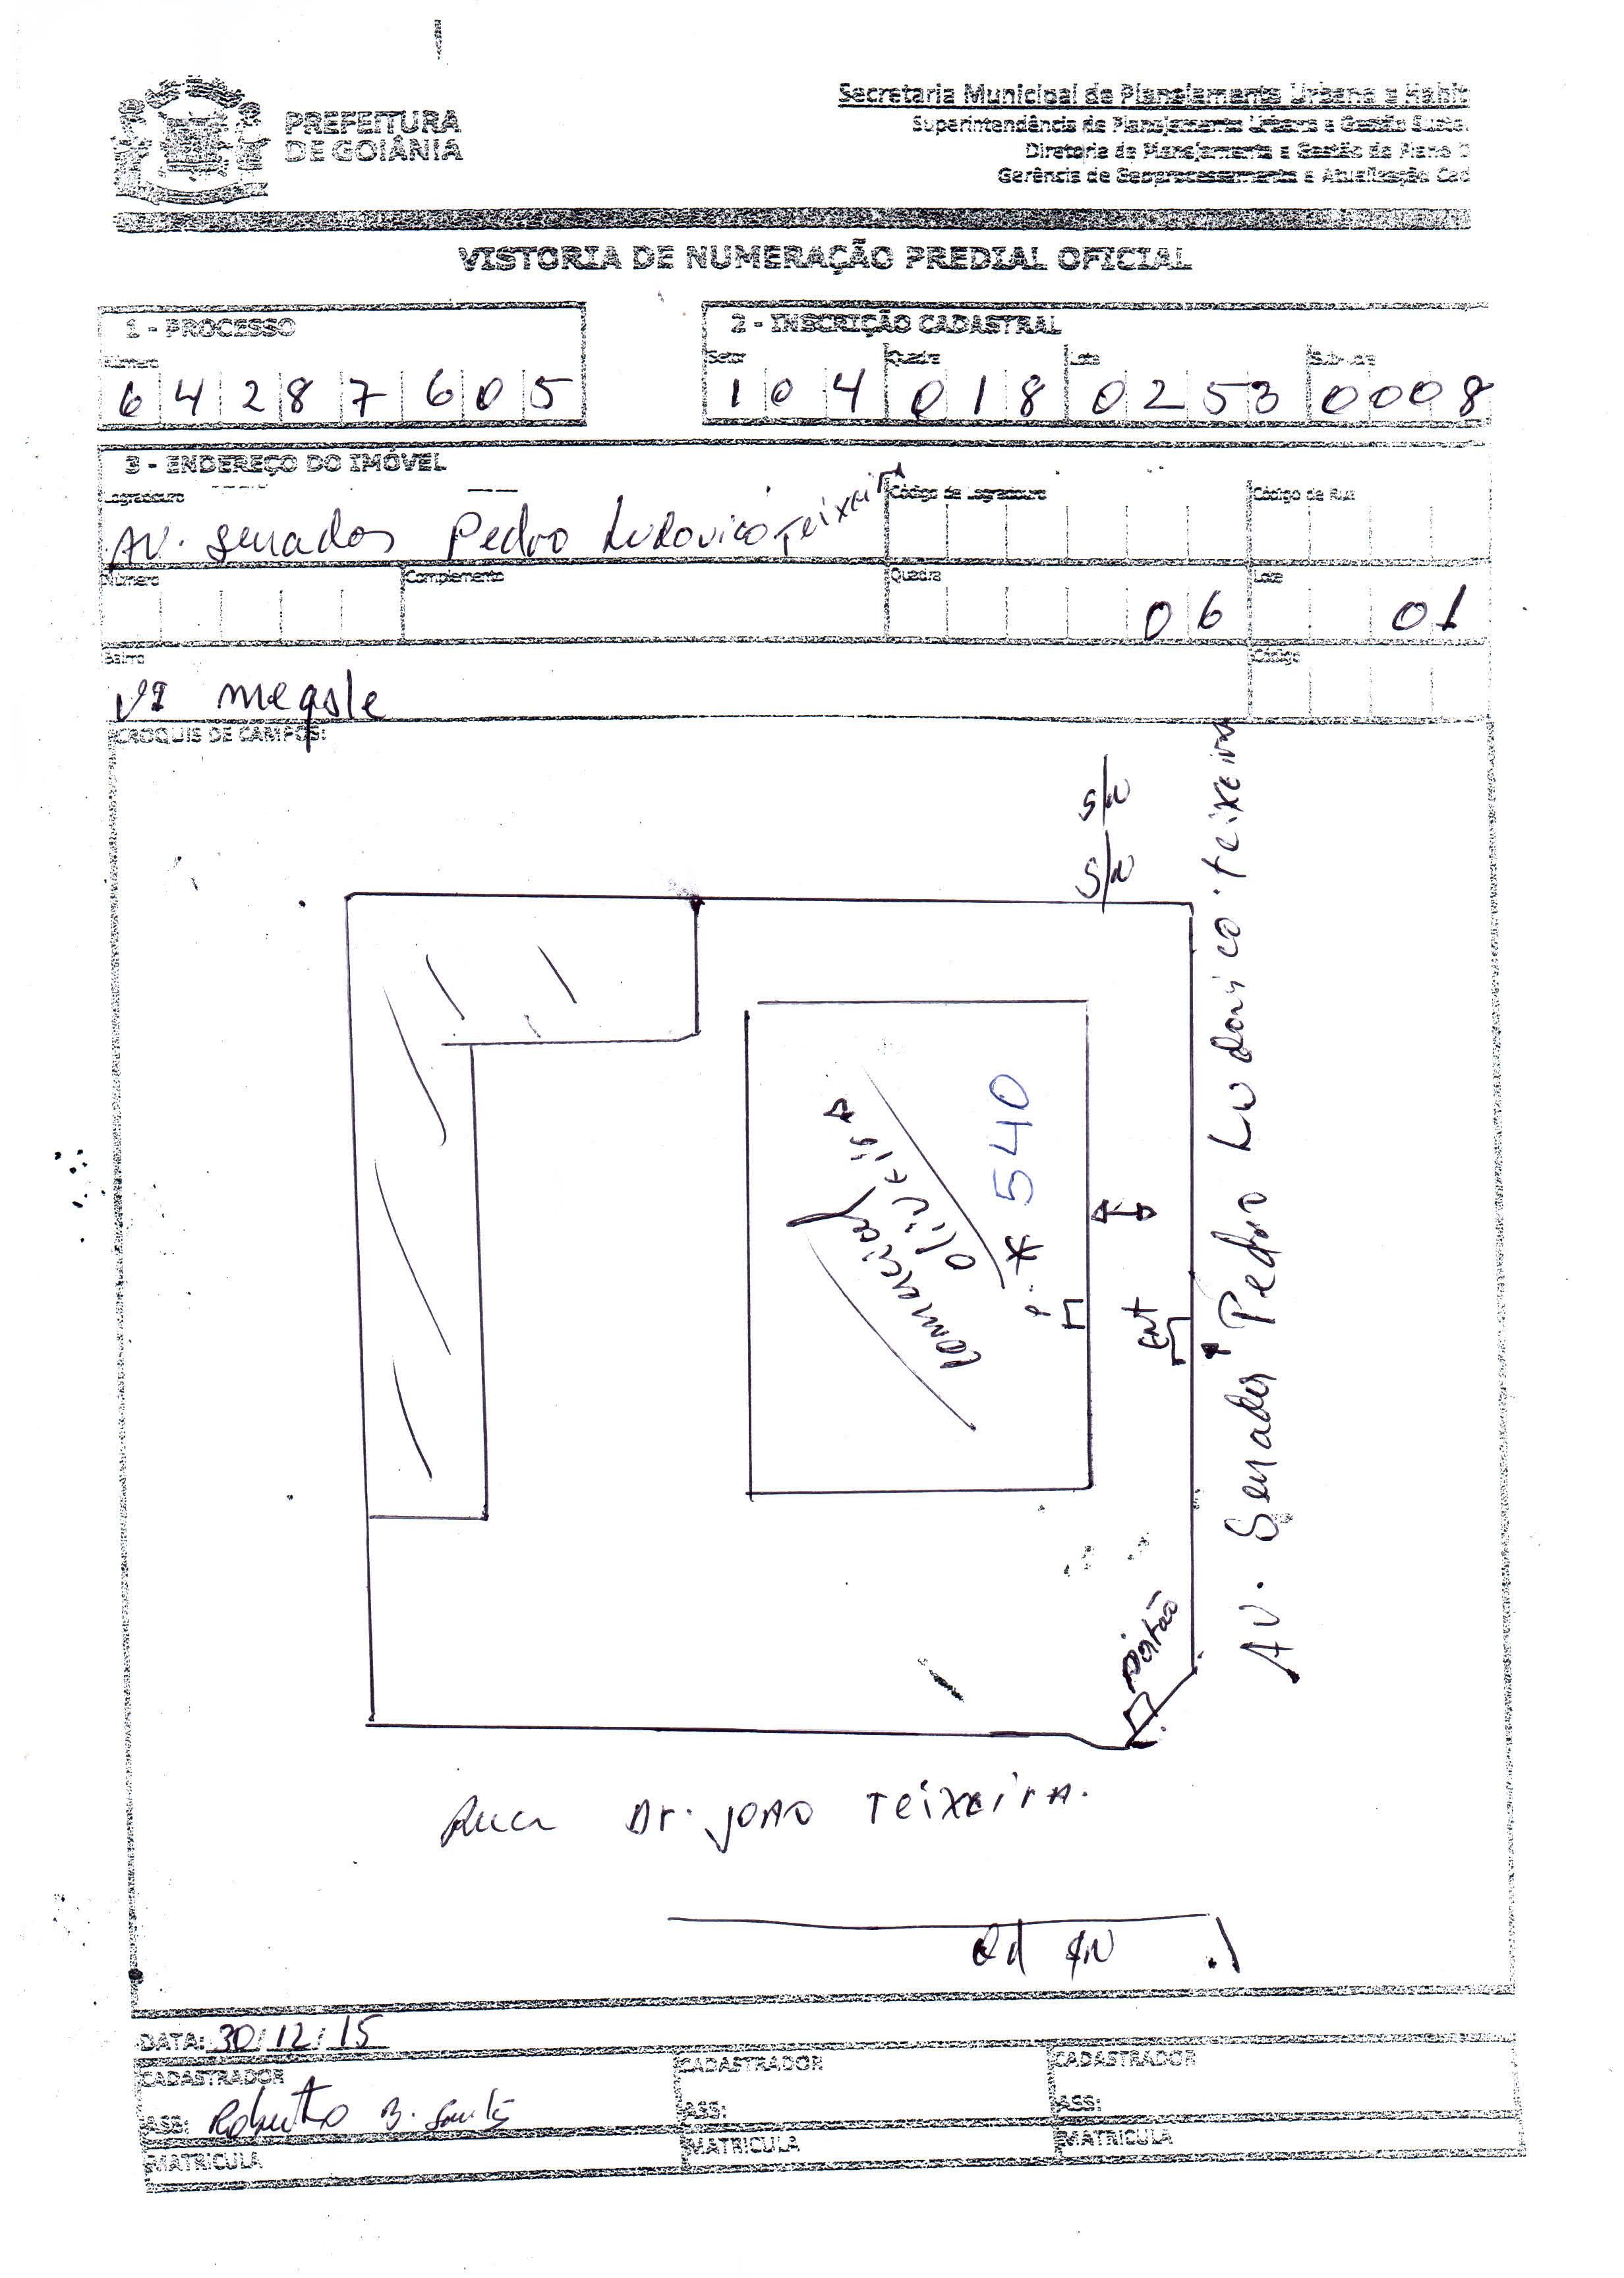 PREFEITURA
DE GOIÂNIA
Secretaria Municipal de Planejamento Urbano e Habit
Superintendência de Planejamento Urbano e Gestão Suste.
Diretoria de Planejamento e Gestão do Plano D
Gerência de Geoprocessamento e Atualização Cad
VISTORIA DE NUMERAÇÃO PREDIAL OFICIAL
1 - PROCESSO
Número
6 4 2 8 7 6 0 5
2 - INSCRIÇÃO CADASTRAL
Setor Quadra Lote Sub-Lote
1 0 4 0 1 8 0 2 5 3 0 0 0 8
3 - ENDEREÇO DO IMÓVEL
Logradouro Código de Logradouro Código da Rua
AV. Senador Pedro Ludovico Teixeira
Número Complemento Quadra Lote
0 6 0 1
Bairro Código
megale
CROQUIS DE CAMPOS:
S/N
S/N
AV. Senador Pedro Ludovico Teixeira
comercial
oliveira
P. * 540
Ent
portão
Rua Dr. JOAO Teixeira.
Qd
DATA: 30/12/15
CADASTRADOR CADASTRADOR CADASTRADOR
ASS: ASS: ASS:
MATRICULA MATRICULA MATRICULA